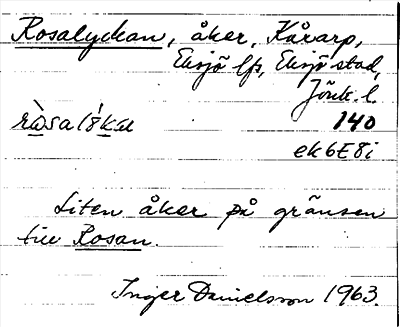 Rosalyckan, åker, Kårarp,
Eksjö lfs, Eksjö stad,
Jönk. l.
140
ek6E8i
Liten åker på gränsen
till Rosan.
Inger Danielsson 1963.